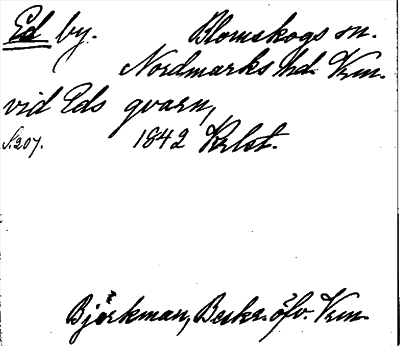 Ed by. Blomskogs sn.
Nordmarks hd. Vrm.
vid Eds qvarn,
S. 207. 1842 Krlst.
Björkman, Beskr. öfv. Vrm.